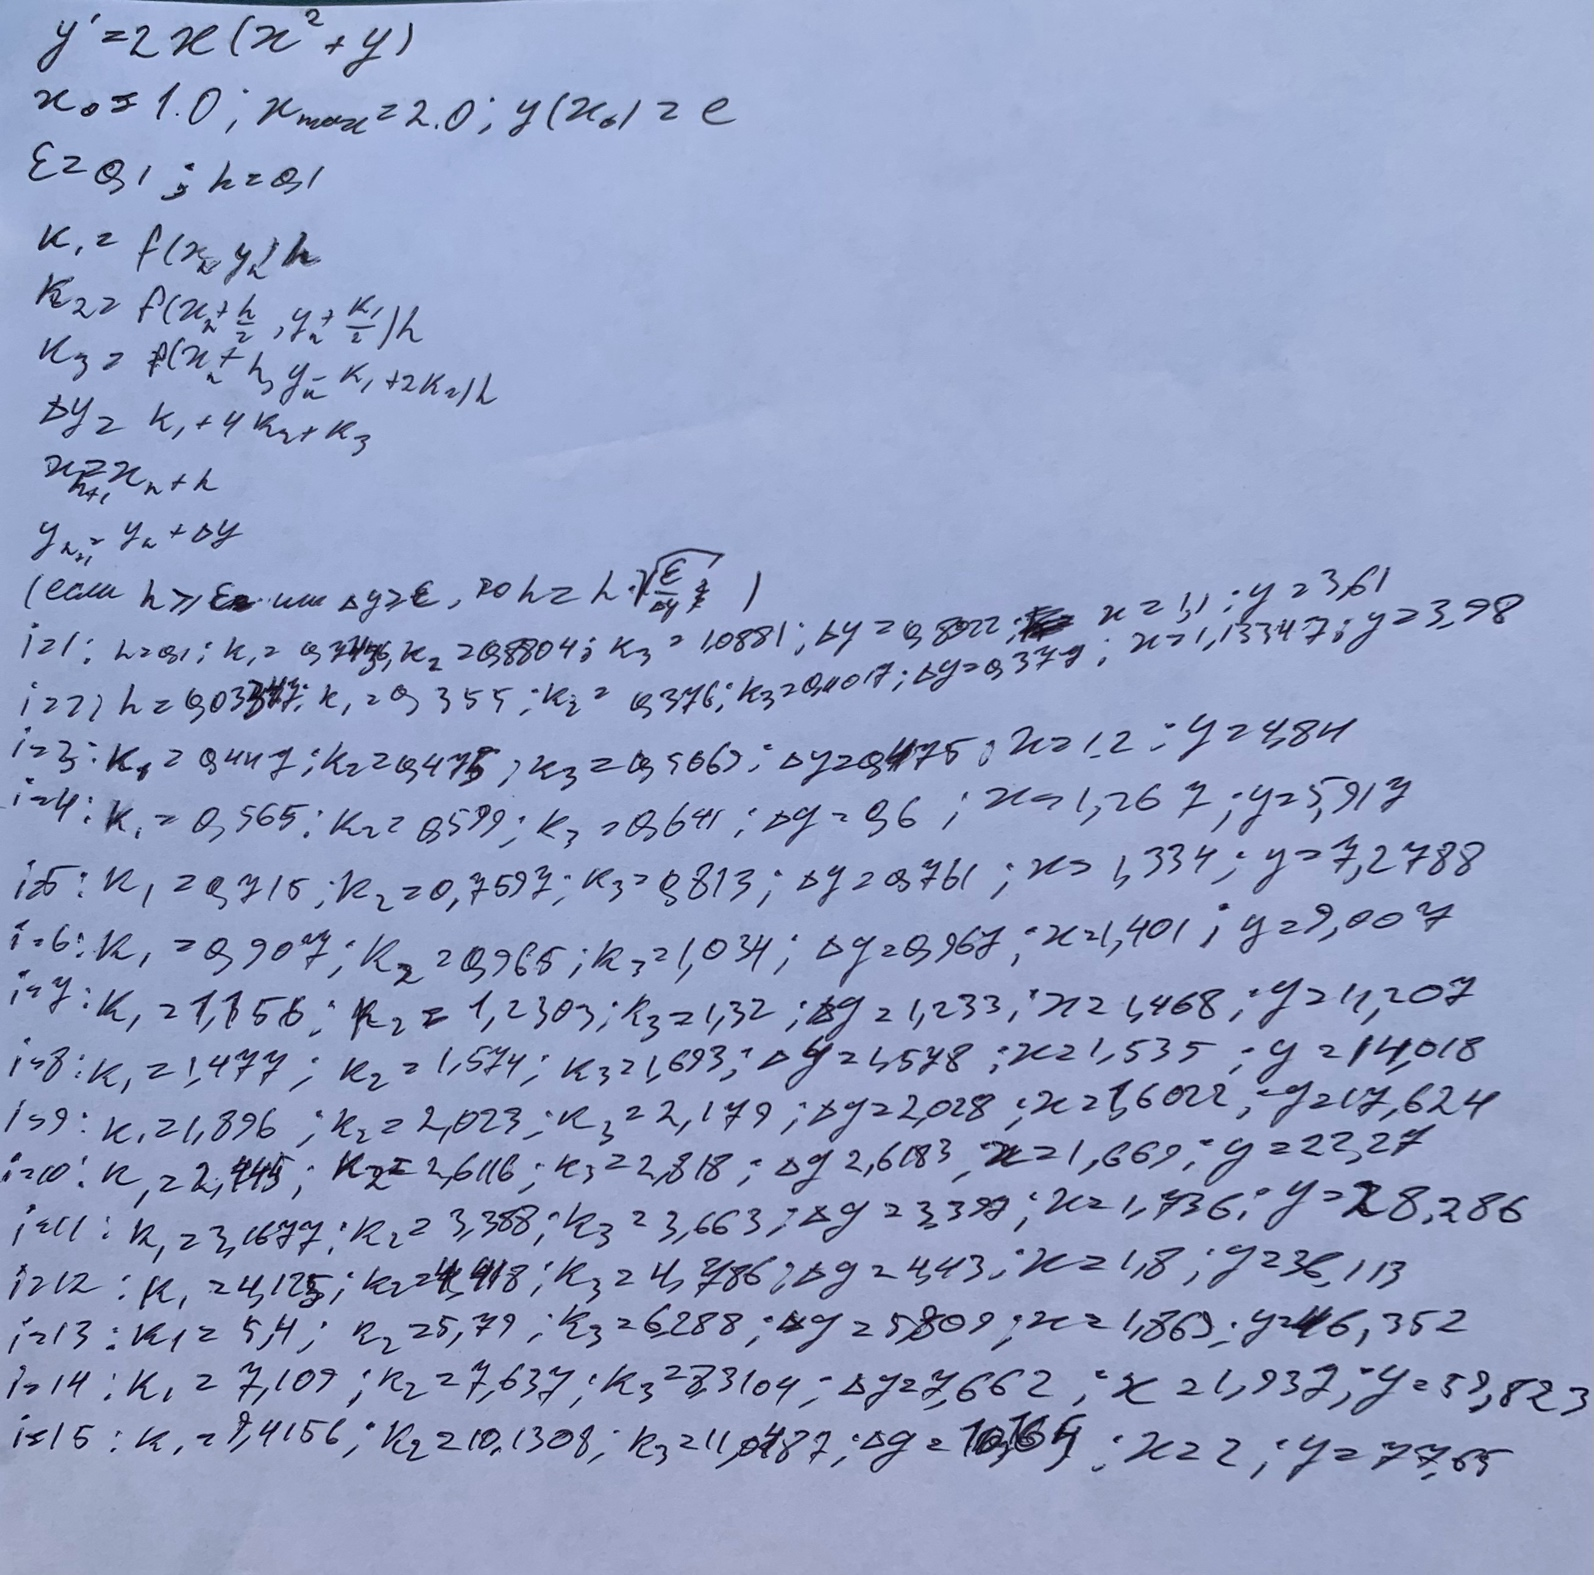 y' = 2x(x² + y)
x₀ = 1.0; x_max = 2.0; y(x₀) = e
ε = 0,1; h = 0,1
K₁ = f(xₙ, yₙ)h
K₂ = f(xₙ + h/2, yₙ + K₁/2)h
K₃ = f(xₙ + h, yₙ - K₁ + 2K₂)h
Δy = K₁ + 4K₂ + K₃
xₙ₊₁ = xₙ + h
yₙ₊₁ = yₙ + Δy
(если h ≥ ε или Δy ≥ ε, то h = h·√(ε/Δy))
i=1: h=0,1; K₁= K₂=0,8804; K₃=1,0881; Δy=0,8922; x=1,1; y=3,61
i=2) K₁=0,355; K₂=0,376; K₃=0,4017; Δy=0,377; x=1,13347; y=3,98
i=3: K₁=0,447; K₂=0,475; K₃= Δy=0,475; x=1,2; y=4,84
i=4: K₁=0,565; K₂=0,599; K₃=0,641; Δy=0,6; x=1,267; y=5,917
i=5: K₁=0,715; K₂=0,7597; K₃=0,813; Δy=0,761; x=1,334; y=7,2788
i=6: K₁=0,907; K₂=0,965; K₃=1,034; Δy=0,967; x=1,401; y=9,007
i=7: K₁=1,156; K₂=1,2303; K₃=1,32; Δy=1,233; x=1,468; y=11,207
i=8: K₁=1,477; K₂=1,574; K₃=1,693; Δy=1,578; x=1,535; y=14,018
i=9: K₁=1,896; K₂=2,023; K₃=2,179; Δy=2,028; x=1,6022; y=17,624
i=10: K₁=2,445; K₂=2,6116; K₃=2,818; Δy 2,6183; x=1,669; y=22,27
i=11: K₁=3,1677; K₂=3,388; K₃=3,663; Δy=3,397; x=1,736; y=28,286
i=12: K₁=4,125; K₂=4,418; K₃=4,786; Δy=4,43; x=1,8; y=36,113
i=13: K₁=5,4; K₂=5,79; K₃=6,288; Δy=5,809; x=1,869; y=46,352
i=14: K₁=7,109; K₂=7,637; K₃=8,3104; Δy=7,662; x=1,937; y=59,823
i=15: K₁=9,4156; K₂=10,1308; K₃=11,0487; Δy= x=2; y=77,65